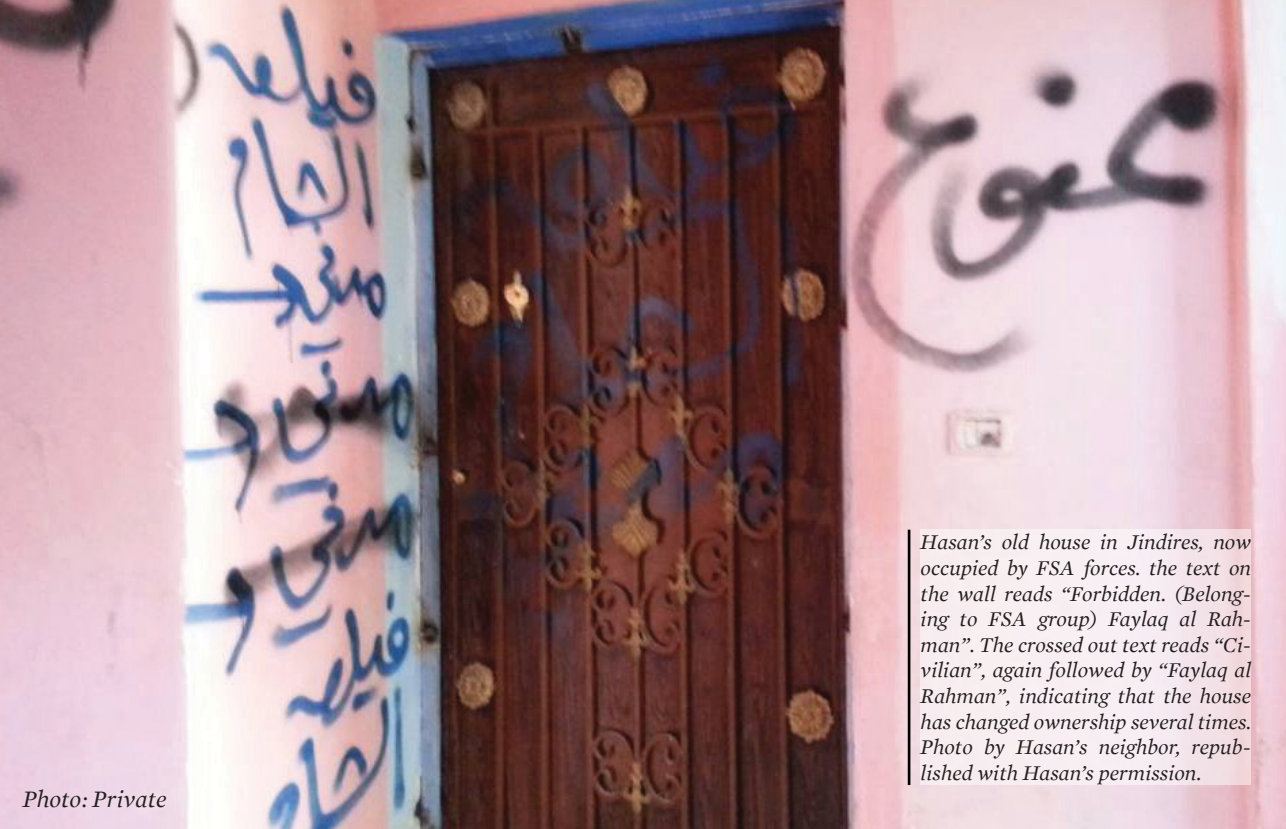 فيلق
الشام
مدني
مدني
مدني
فيلق
الشام
ممنوع
Hasan’s old house in Jindires, now
occupied by FSA forces. the text on
the wall reads “Forbidden. (Belong-
ing to FSA group) Faylaq al Rah-
man”. The crossed out text reads “Ci-
vilian”, again followed by “Faylaq al
Rahman”, indicating that the house
has changed ownership several times.
Photo by Hasan’s neighbor, repub-
lished with Hasan’s permission.
Photo: Private